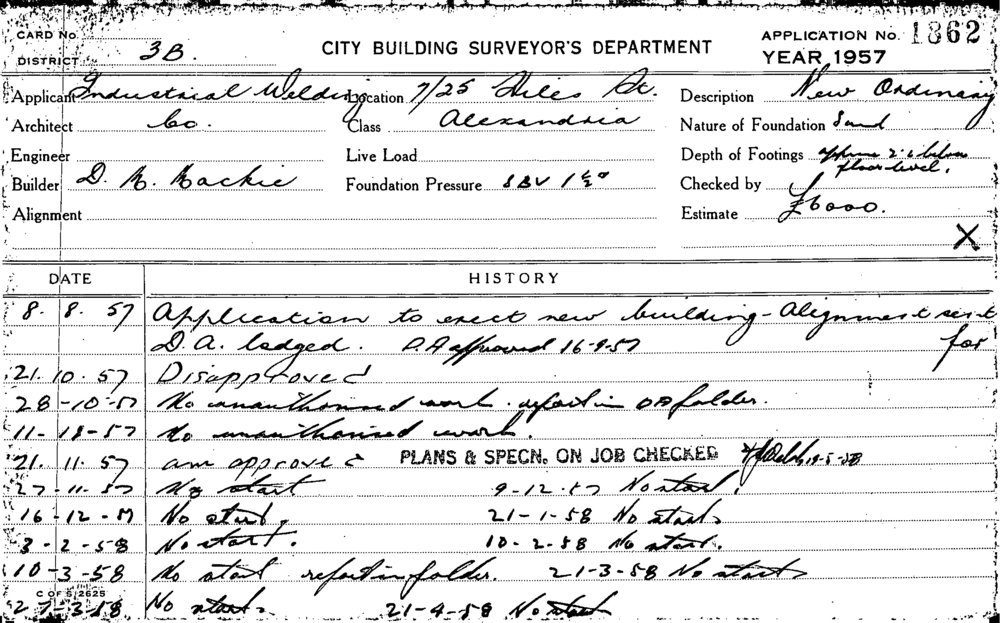 CARD No.
DISTRICT 3B.
CITY BUILDING SURVEYOR'S DEPARTMENT
APPLICATION No. 1862
YEAR 1957
Applicant Industrial Welding Location 7/25 Hiles St. Description New Ordinary
Architect Co. Class Alexandria Nature of Foundation Sand
Engineer Live Load Depth of Footings approx 2'.6 below
floor level.
Builder D. R. Mackie Foundation Pressure SBV 1½ Checked by
Alignment Estimate £6000.
X
DATE HISTORY
8. 8. 57 Application to erect new building - Alignment sent
for
D.A. lodged. D.A approved 16-9-57
21. 10. 57 Disapproved
28-10-57 No unauthorised work. report in folder.
11- -57 No unauthorised work.
21. 11. 57 am approved PLANS & SPECN. ON JOB CHECKED 19-5-58
27-11-57 No start 9-12-57 No start.
16-12-57 No start. 21-1-58 No start
3-2-58 No start. 10-2-58 No start.
10-3-58 No start report in folder. 21-3-58 No start
C OF S 2625
27-3-58 No start. 21-4-58 No start